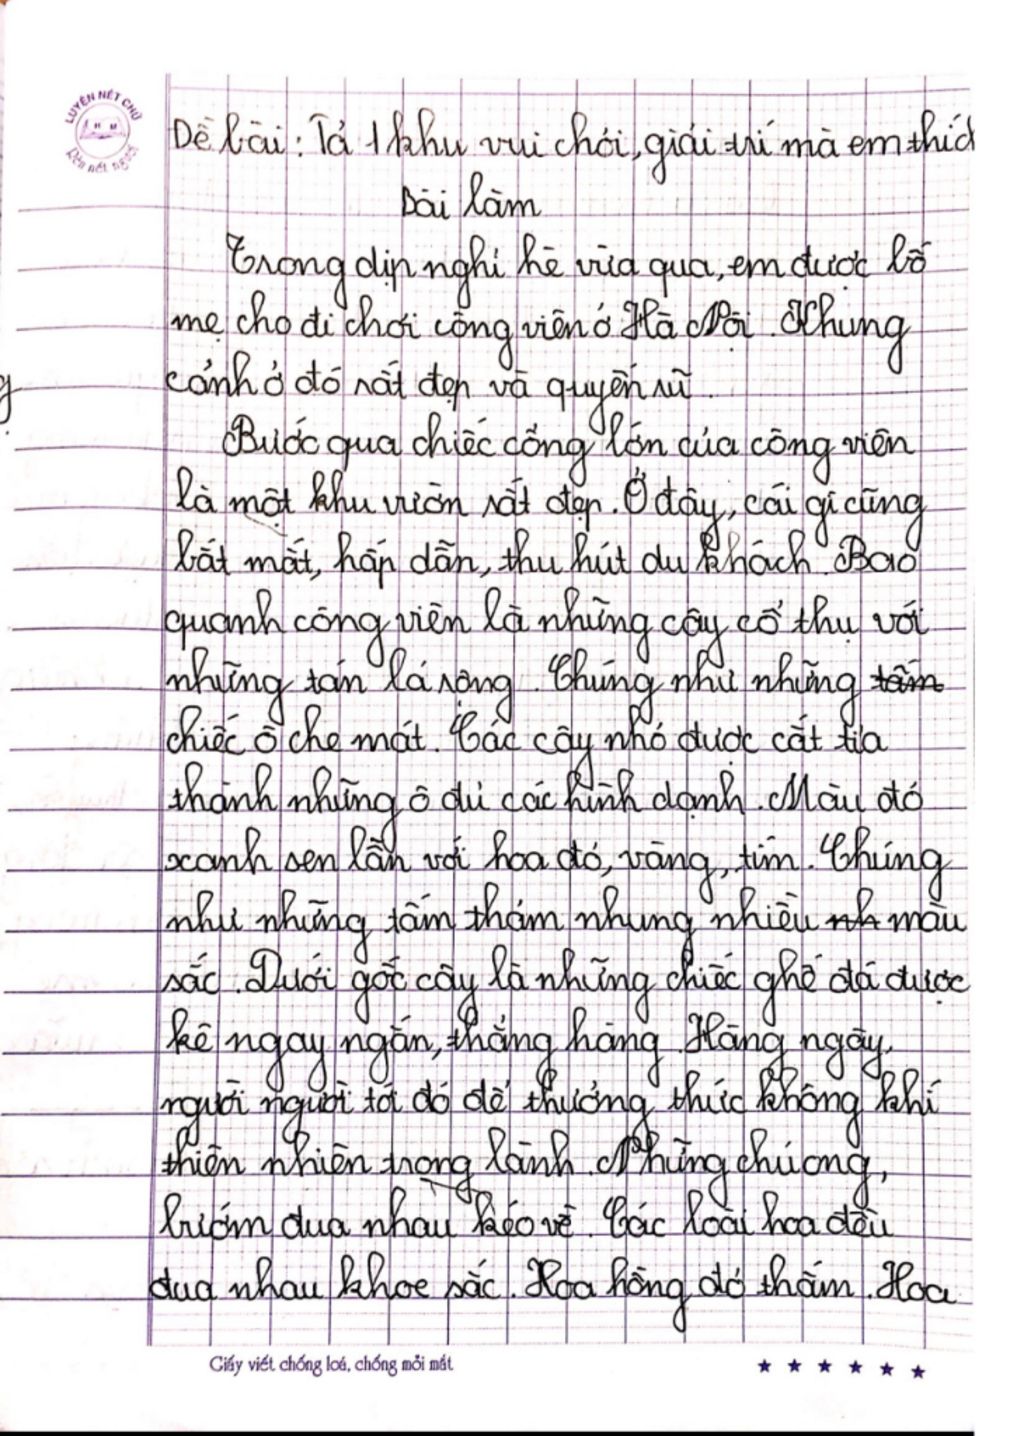 LUYỆN NÉT CHỮ
Rèn nết người
Đề bài: Tả 1 khu vui chơi, giải trí mà em thích
Bài làm
Trong dịp nghỉ hè vừa qua, em được bố
mẹ cho đi chơi công viên ở Hà Nội. Khung
cảnh ở đó rất đẹp và quyến rũ.
Bước qua chiếc cổng lớn của công viên
là một khu vườn rất đẹp. Ở đây, cái gì cũng
bắt mắt, hấp dẫn, thu hút du khách. Bao
quanh công viên là những cây cổ thụ với
những tán lá rộng. Chúng như những tấm
chiếc ô che mát. Các cây nhỏ được cắt tỉa
thành những ô đủ các hình dạnh. Màu đỏ
xanh sen lẫn với hoa đỏ, vàng, tím. Chúng
như những tấm thảm nhung nhiều nh màu
sắc. Dưới gốc cây là những chiếc ghế đá được
kê ngay ngắn, thẳng hàng. Hàng ngày,
người người tới đó để thưởng thức không khí
thiên nhiên trong lành. Những chú ong,
bướm đua nhau kéo về. Các loài hoa đều
đua nhau khoe sắc. Hoa hồng đỏ thắm. Hoa
Giấy viết chống loá, chống mỏi mắt